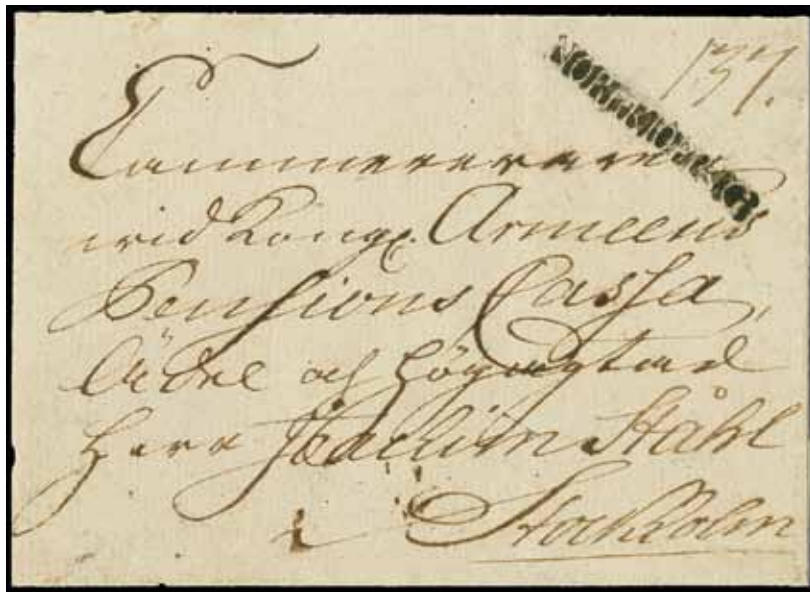 137.
NORRKIÖPING
Cammereraren
wid Kongl. Armeens
Pensions Cassa,
Ädel och Högagtad
Herr Joachim Ståhl
i Stockholm